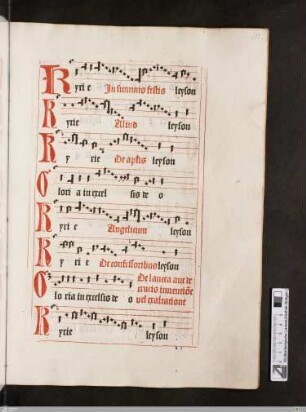 Kyri e In summo festis leyson
Kyrie Aliud leyson
Ky rie De aplis leyson
Glori a in excel sis de o
Kyri e Angelicum leyson
Ky ri e De confessoribus leyson
Glo ria in excelsis de o De sancta aut de crucis inuentiõe vel exaltatione
Kyrie leyson